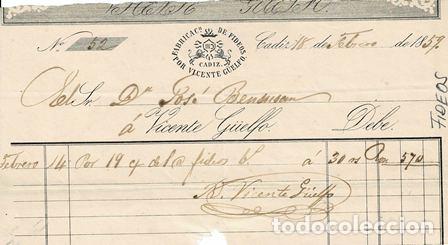 Nº 52
FABRICACⁿ DE FIDEOS
POR VICENTE GÜELFO.
CADIZ.
Cadiz 18 de Febrero de 1857
FIDEOS
El Sr. Dn José
á Vicente Güelfo. Debe.
Febrero 14 Por 19 de fideos á 30 rs 570
Vicente Güelfo
todocoleccion.net